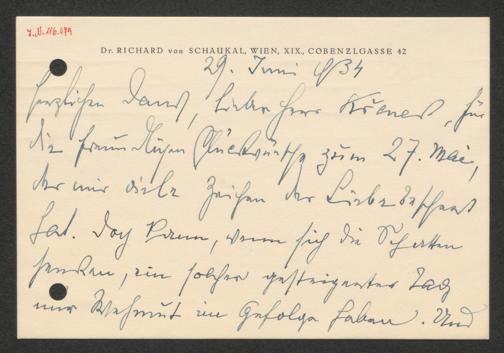 J.N. 116.079
Dr. RICHARD von SCHAUKAL, WIEN, XIX., COBENZLGASSE 42
29. Juni 1934
Herzlichen Dank, lieber Herr Křenek, für
die freundlichen Glückwünsche zum 27. Mai,
der mir viele Zeichen der Liebe beschert
hat. Doch kann, wenn sich die Schatten
senken, ein solcher gesteigerter Tag
nur Wehmut im Gefolge haben. Und